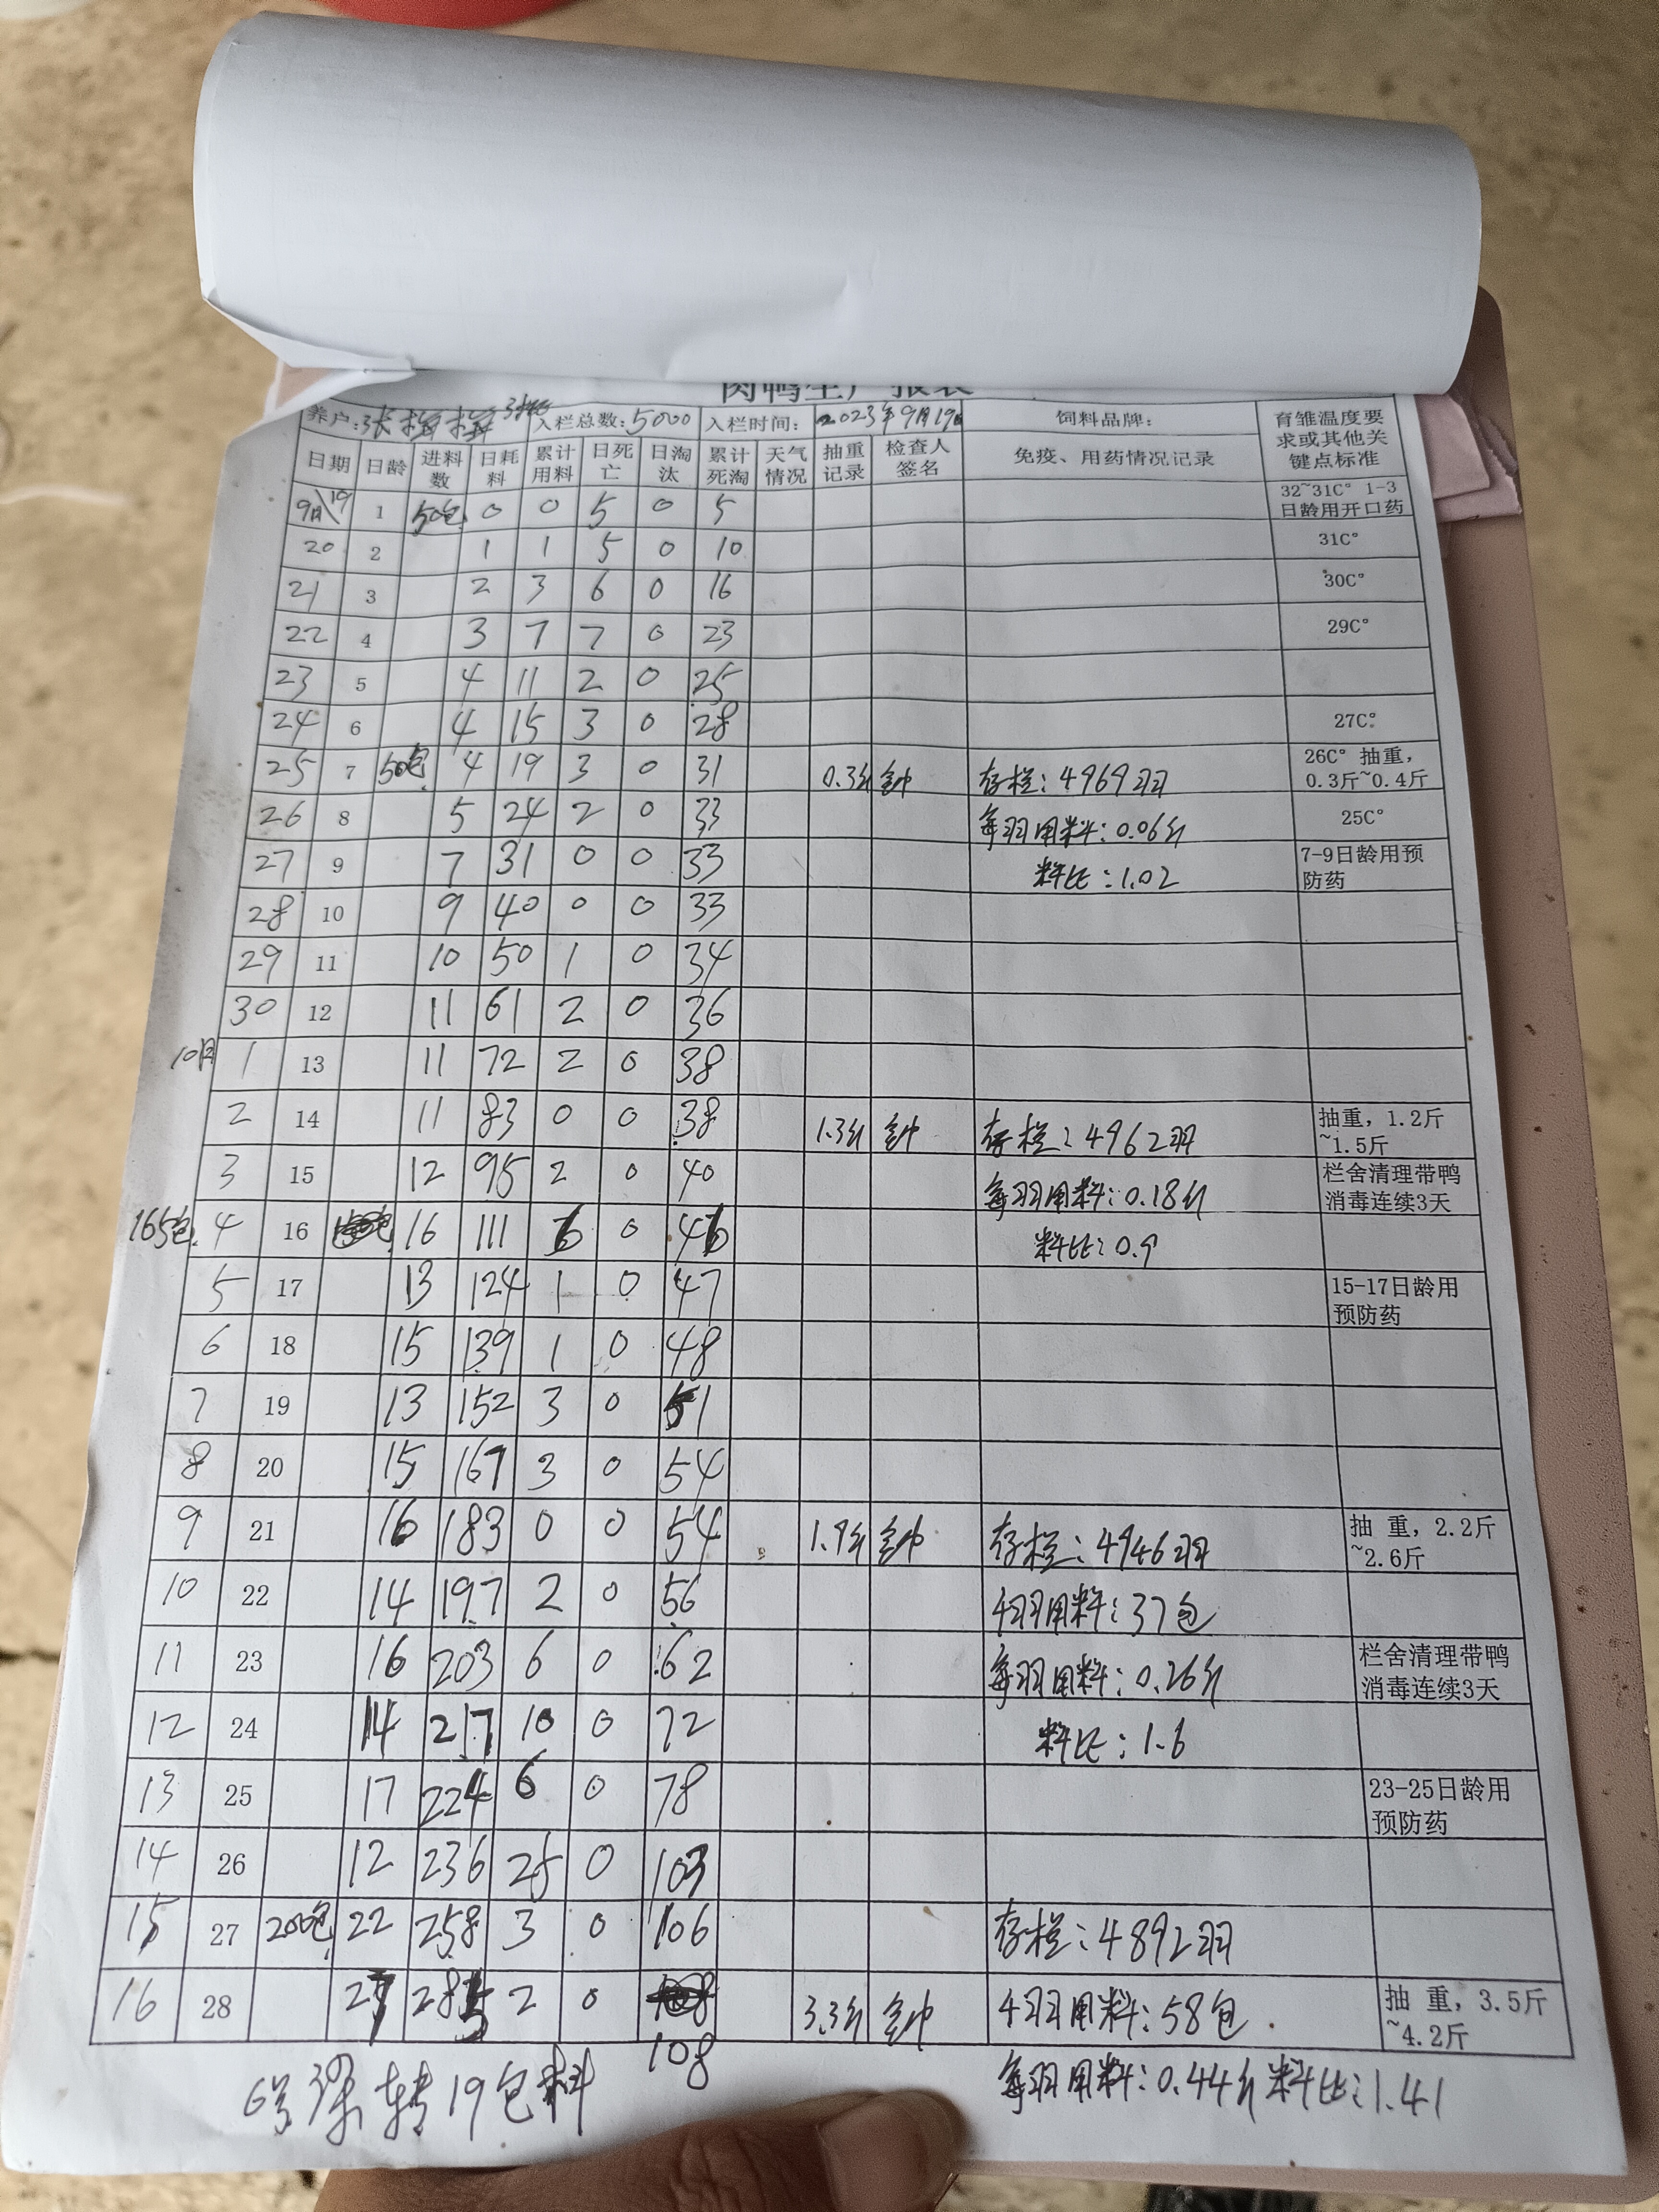 肉鸭生产报表
养户: 入栏总数:5000 入栏时间:2023年9月19日 饲料品牌: 育雏温度要求或其他关键点标准
日期 日龄 进料数 日耗料 累计用料 日死亡 日淘汰 累计死淘 天气情况 抽重记录 检查人签名 免疫、用药情况记录
9月19 1 50包 0 0 5 0 5 32~31C° 1-3日龄用开口药
20 2 1 1 5 0 10 31C°
21 3 2 3 6 0 16 30C°
22 4 3 7 7 0 23 29C°
23 5 4 11 2 0 25
24 6 4 15 3 0 28 27C°
25 7 50包 4 19 3 0 31 0.3斤 存栏:4969羽 26C° 抽重,0.3斤~0.4斤
26 8 5 24 2 0 33 每羽用料:0.06斤 25C°
27 9 7 31 0 0 33 料比:1.02 7-9日龄用预防药
28 10 9 40 0 0 33
29 11 10 50 1 0 34
30 12 11 61 2 0 36
10月 1 13 11 72 2 0 38
2 14 11 83 0 0 38 1.3斤 存栏:4962羽 抽重,1.2斤~1.5斤
3 15 12 95 2 0 40 每羽用料:0.18斤 栏舍清理带鸭消毒连续3天
165包 4 16 16 111 6 0 46 料比:0.9
5 17 13 124 1 0 47 15-17日龄用预防药
6 18 15 139 1 0 48
7 19 13 152 3 0 51
8 20 15 167 3 0 54
9 21 16 183 0 0 54 1.9斤 存栏:4946羽 抽 重,2.2斤~2.6斤
10 22 14 197 2 0 56 千羽用料:37包
11 23 16 203 6 0 62 每羽用料:0.26斤 栏舍清理带鸭消毒连续3天
12 24 14 217 10 0 72 料比:1.6
13 25 17 224 6 0 78 23-25日龄用预防药
14 26 12 236 25 0 103
15 27 200包 22 258 3 0 106 存栏:4892羽
16 28 27 285 2 0 108 3.3斤 千羽用料:58包 抽 重,3.5斤~4.2斤
6号 转19包料 每羽用料:0.44斤 料比:1.41